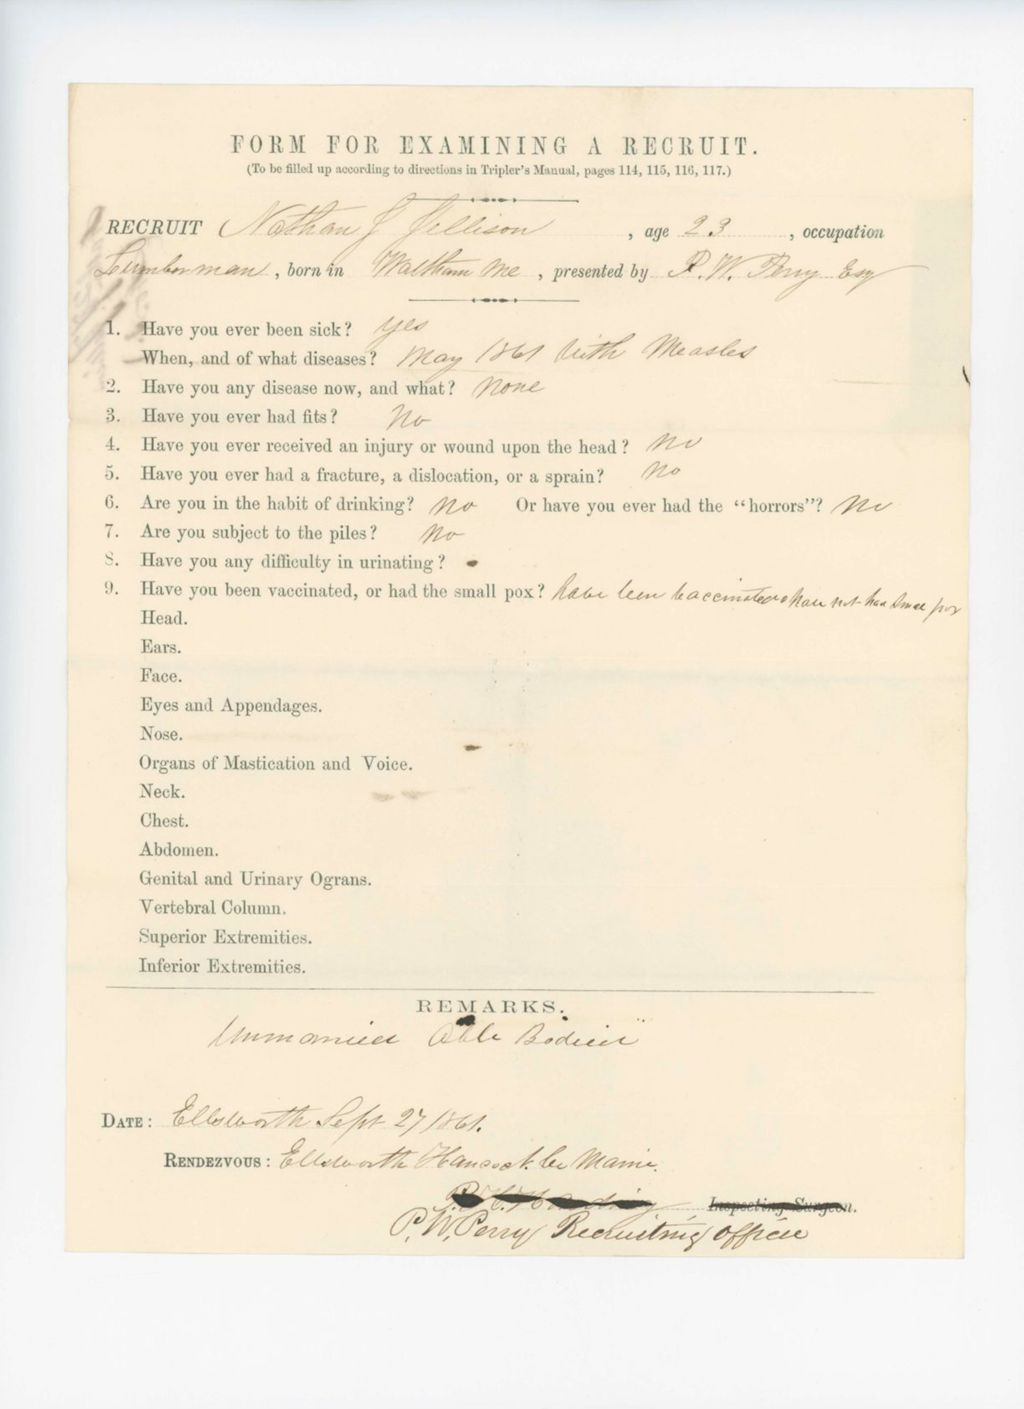 FORM FOR EXAMINING A RECRUIT.
(To be filled up according to directions in Tripler's Manual, pages 114, 115, 116, 117.)
RECRUIT Nathan J Jellison, age 23, occupation
Lumberman, born in Waltham Me, presented by P. W. Perry Esq
1. Have you ever been sick? yes
When, and of what diseases? May 1861 With Measles
2. Have you any disease now, and what? None
3. Have you ever had fits? No
4. Have you ever received an injury or wound upon the head? No
5. Have you ever had a fracture, a dislocation, or a sprain? No
6. Are you in the habit of drinking? No Or have you ever had the "horrors"? No
7. Are you subject to the piles? No
8. Have you any difficulty in urinating?
9. Have you been vaccinated, or had the small pox? have been vaccinated have not had Small pox
Head.
Ears.
Face.
Eyes and Appendages.
Nose.
Organs of Mastication and Voice.
Neck.
Chest.
Abdomen.
Genital and Urinary Ograns.
Vertebral Column.
Superior Extremities.
Inferior Extremities.
REMARKS.
Unmarried Able Bodied
DATE: Ellsworth Sept 27 1861.
RENDEZVOUS: Ellsworth Hancock Co Maine.
Inspecting Surgeon.
P. W. Perry Recruiting Officer